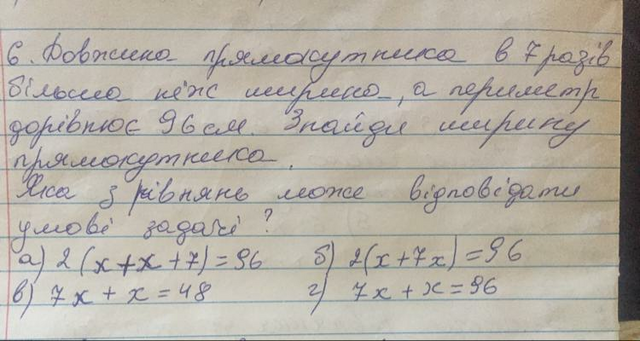 6. Довжина прямокутника в 7 разів
більша ніж ширина, а периметр
дорівнює 96 см. Знайди ширину
прямокутника.
Яка з рівнянь може відповідати
умові задачі?
а) 2(x+x+7)=96 б) 2(x+7x)=96
в) 7x+x=48 г) 7x+x=96